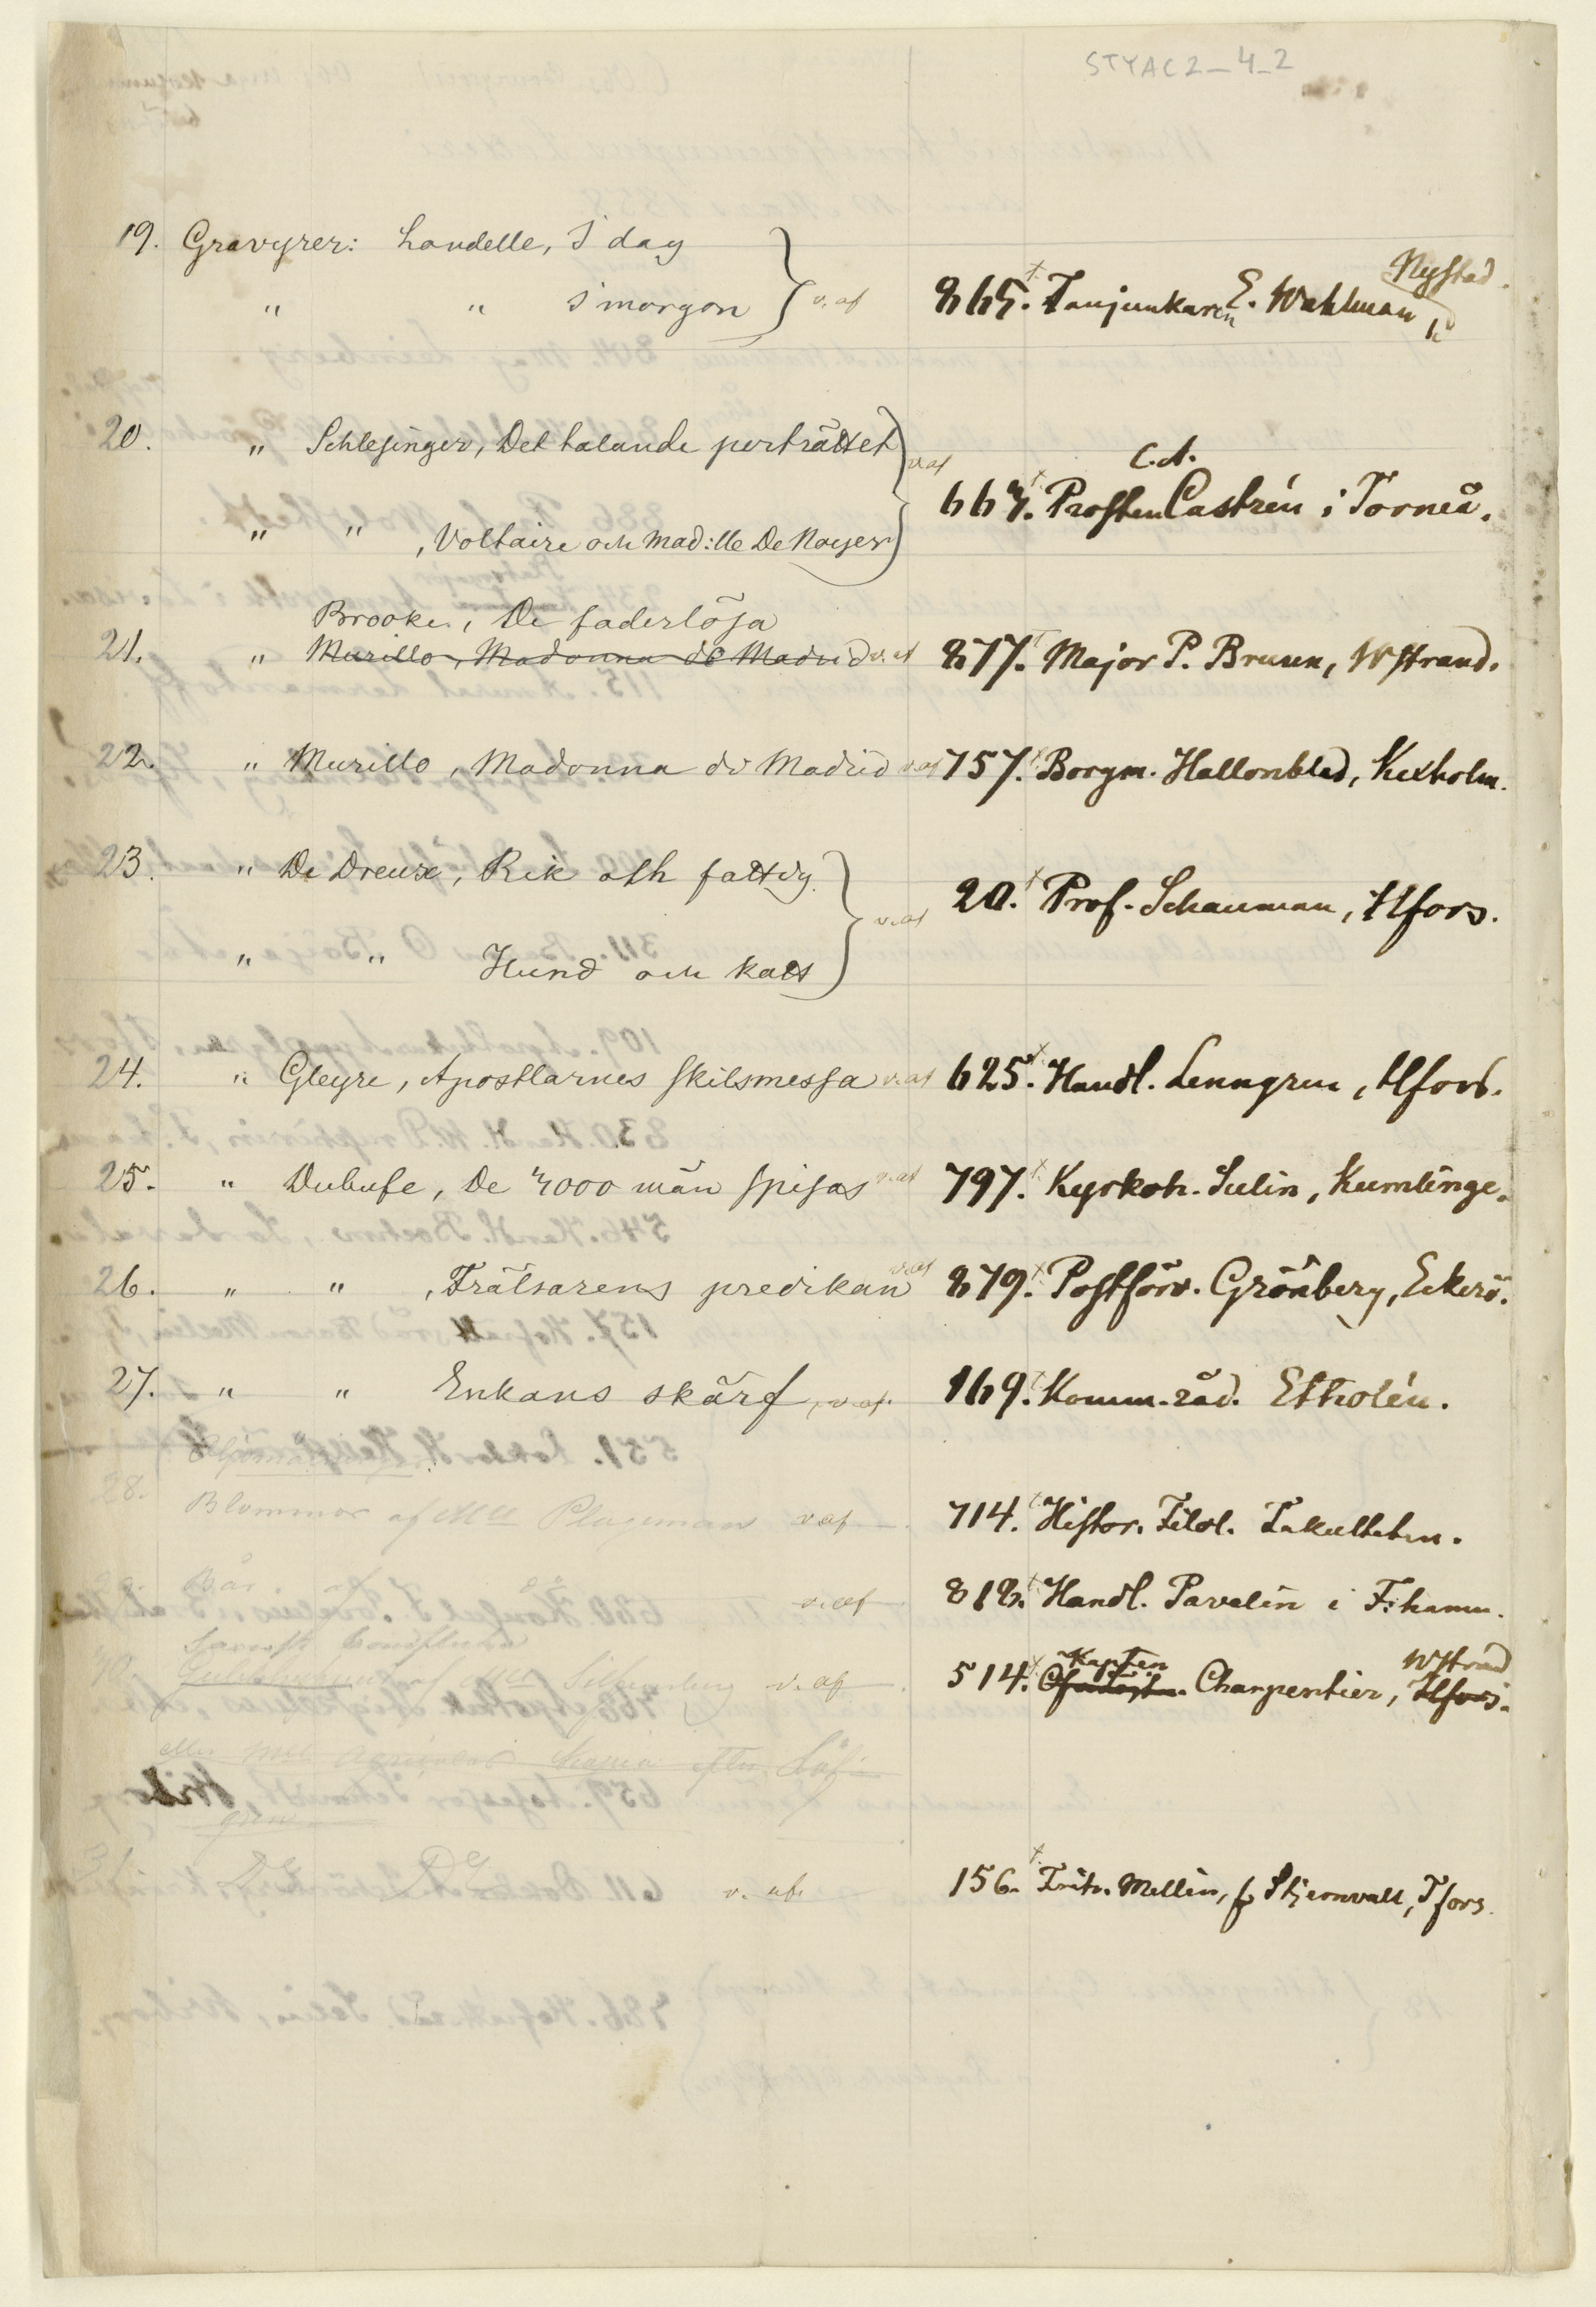 STYAC2_4_2
19. Gravyrer: Landelle, I dag
" " I morgon v. af 865. Fanjunkaren E. Wahlman, Nystad.
20. " Schlesinger, Det talande porträttet v. af
" " , Voltaire och Mad:lle De Noyer 667. Prosten C.A. Castrén i Torneå.
Brooke, De faderlösa
21. " Murillo, Madonna de Madrid v. af 877. Major P. Bruun, Wstrand.
22. " Murillo, Madonna de Madrid v. af 757. Borgm. Hallonblad, Kexholm.
23. " De Dreux, Rik och fattig
" " Hund och katt v. af 20. Prof. Schauman, Hfors.
24. " Gleyre, Apostlarnes skilsmessa v. af 625. Handl. Lenngren, Hfors.
25. " Dubufe, De 4000 män spisas v. af 797. Kyrkoh. Sulin, Kumlinge.
26. " " , Frälsarens predikan v. af 879. Postförv. Grönberg, Eckerö.
27. " " Enkans skärf, v. af. 169. Komm.råd. Etholén.
28. Blommor af Mll Plageman v. af 714. Histor. Filol. Fakulteten.
Bär v. af 818. Handl. Pavelin i F:hamn.
v. af 514. Kapten Charpentier, Wstrand Hfors.
eller
31. v. af. 156. Frih. Mellin, f. Stjernvall, Tfors.